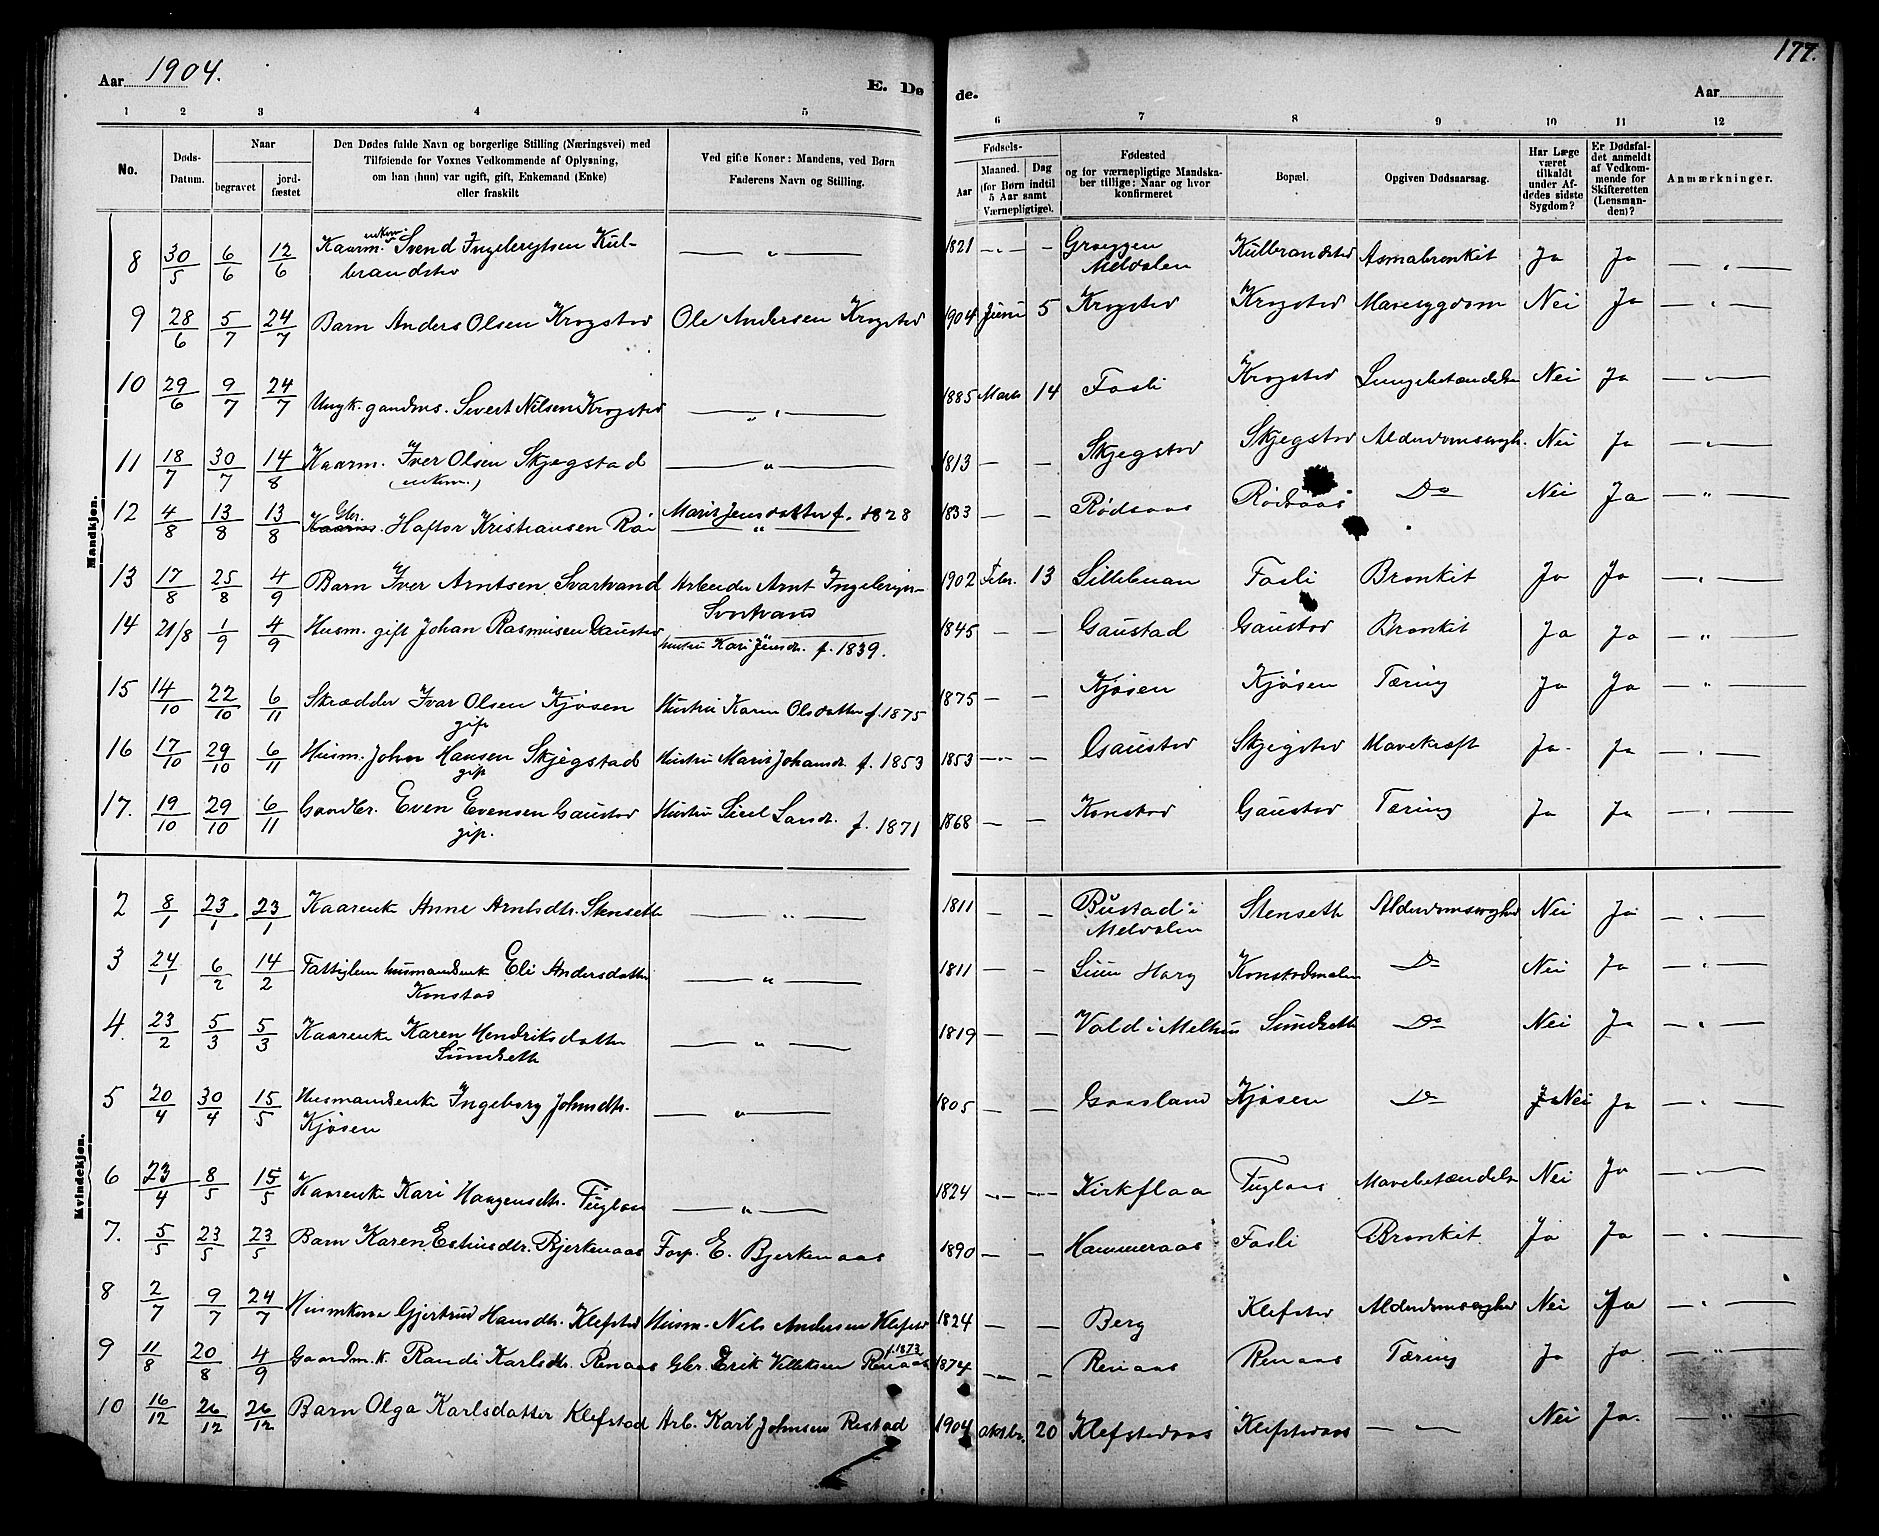 Aar 1904.
E. Dø de.
Aar
177.
1 2 3 4 5 6 7 8 9 10 11 12
No.
Døds-Datum.
Naar
begravet
jordfæstet
Den Dødes fulde Navn og borgerlige Stilling (Næringsvei) med
Tilføiende for Voxnes Vedkommende af Oplysning,
om han (hun) var ugift, gift, Enkemand (Enke)
eller fraskilt
Ved gifte Koner: Mandens, ved Børn
Faderens Navn og Stilling.
Fødsels-
Aar
Maaned.
Dag
(for Børn indtil
5 Aar samt
Værnepligtige).
Fødested
og for værnepligtige Mandska-
ber tillige: Naar og hvor
konfirmeret
Bopæl.
Opgiven Dødsaarsag.
Har Læge
været
tilkaldt
under Af-
dødes sidste
Sygdom?
Er Dødsfal-
det anmeldt
af Vedkom-
mende for
Skifteretten
(Lensman-
den)?
Anmærkninger.
Mandkjøn.
8 30/5 6/6 12/6 Kaarm. enkem. Svend Ingebrigtsen Kul- — " — 1821 — — Kulbrandstad Asmabronkit Ja Ja — " —
brandstad Meldalen
9 28/6 5/7 24/7 Barn Anders Olsen Krogstad Ole Andersen Krogstad 1904 Juni 5 Krogstad Krogstad Mavesygdom Nei Ja — " —
10 29/6 9/7 24/7 Ungk. gaardms. Sivert Nilsen Krogstad — " — 1885 Marts 14 Fosli Krogstad Lungebetændelse Nei Ja — " —
11 18/7 30/7 14/8 Kaarm. Iver Olsen Skjegstad — " — 1813 — — Skjegstad Skjegstad Alderdomssvagh. Nei Ja — " —
(enkem.)
12 4/8 13/8 13/8 Gbr. Haftor Kristiansen Marit Jensdatter f. 1828 1833 — — Rødsaas Rødsaas Do Nei Ja — " —
13 17/8 25/8 4/9 Barn Iver Arntsen Svartvand Arbeider Arnt Ingebrigts- 1902 Febr. 13 Lillebuan Fosli Bronkit Ja Ja — " —
Svartvand
14 21/8 1/9 4/9 Husm. gift Johan Rasmusen Gaustad Hustru Kari Jensdr. f. 1839. 1845 — — Gaustad Gaustad Bronkit Ja Ja — " —
15 14/10 22/10 6/11 Skrædder Ivar Olsen Kjøsen Hustru Karen Olsdatter f. 1875 1875 — — Kjøsen Kjøsen Tæring Ja Ja — " —
gift
16 17/10 29/10 6/11 Husm. John Hansen Skjegstad Hustru Marit Johansdr. f. 1853 1853 — — Gaustad Skjegstad Mavekræft Ja Ja — " —
gift
17. 19/10 29/10 6/11 Gaardbr. Even Evensen Gaustad Hustru Sicel Larsdr. f. 1871 1868 — — Konstad Gaustad Tæring Ja Ja — " —
gift.
Kvindekjøn.
2 8/1 23/1 23/1 Kaarenke Anne Arntsdtr. Stenseth — " — 1811 — — Bustad i Stenseth Alderdomssvaghed Nei Ja — " —
Meldalen
3 24/1 6/2 14/2 Fattiglem husmandsenk Eli Andersdatter — " — 1811 — — Konstadmalen Do Nei Ja — " —
Konstad
4. 23/2 5/3 5/3 Kaarenke Karen Hendriksdatter — " — 1819 — — Vold i Melhus Sundseth Do Nei Ja — " —
Sundseth
5 20/4 30/4 15/5 Husmandsenke Ingeborg Johnsdtr. — " — 1805 — — Kjøsen Do Nei Ja — " —
Kjøsen
6 23/4 8/5 15/5 Kaarenke Kari Haagensdtr. Fuglaas — " — 1824 — — Kirkflaa Fuglaas Mavebetændelse Nei Ja — " —
7. 5/5 23/5 23/5 Barn Karen Bjerkenaas Forp. E. Bjerkenaas 1890 — — Hammeraas Fosli Bronkit Ja Ja — " —
8 2/7 9/7 24/7 Husmkone Gjertrud Hansdtr. Klefstad Husm. Nils Andersen Klefstad 1824 — — Berg Klefstad Alderdomssvaghed Nei Ja — " —
9 11/8 20/8 4/9 Gaardm. k. Randi Karlsdtr. Renaas Gbr. Erik Renaas f. 1873 1874 — — Renaas Renaas Tæring Ja Ja — " —
10 16/12 26/12 26/12 Barn Olga Karlsdatter Klefstad Arb. Karl Johnsen Restad 1904 Oktbr. 20 Klefstadaas Klefstadaas — — Nei Ja. — " —